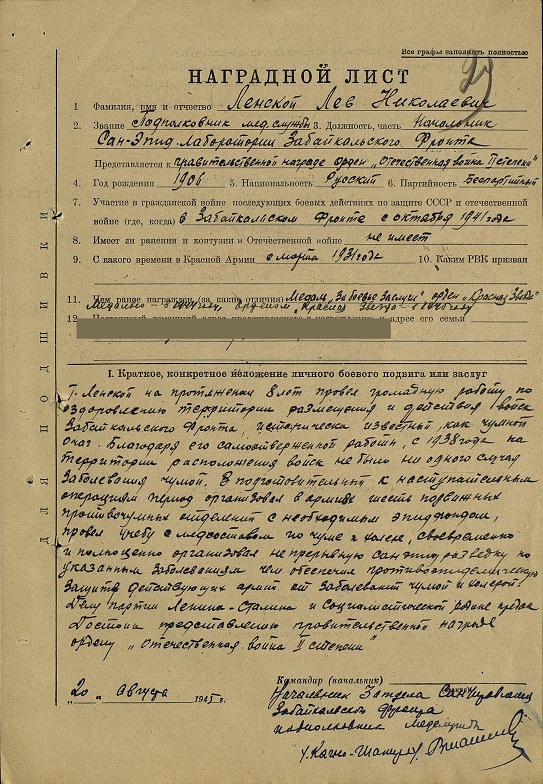 Все графы заполнять полностью
29
НАГРАДНОЙ ЛИСТ
1 Фамилия, имя и отчество Ленской Лев Николаевич
2. Звание Подполковник мед службы 3. Должность, часть Начальник
Сан-Эпид. Лаборатории Забайкальского Фронта
Представляется к правительственной награде орден „Отечественная война II степени"
4. Год рождения 1906 5. Национальность Русский 6. Партийность Беспартийный
7. Участие в гражданской войне последующих боевых действиях по защите СССР и отечественной
войне (где, когда) в Забайкальском Фронте с октября 1941 года
8. Имеет ли ранения и контузии в Отечественной войне не имеет
9. С какого времени в Красной Армии с марта 1931 года 10. Каким РВК призван
11. Чем ранее награжден (за какие отличия) Медаль „За боевые Заслуги" орден „Красная Звезда"
Медалью - в году, орденом „Красная Звезда" в году
12. адрес его семьи
I. Краткое, конкретное изложение личного боевого подвига или заслуг
Т. Ленской на протяжении 8 лет провел громадную работу по
оздоровлению территории размещения и действия войск
Забайкальского Фронта, исторически известной как чумной
очаг. Благодаря его самоотверженной работы, с 1938 года на
территории расположения войск не было ни одного случая
Заболевания чумой. В подготовительный к наступательным
операциям период организовал в армиях шесть подвижных
противочумных отделений с необходимым эпидфондом,
провел учебу с медсоставом по чуме и холере, своевременно
и полноценно организовал непрерывную сан эпид разведку по
указанным заболеваниям чем обеспечил противоэпидемическую
защиту действующих армий от заболеваний чумой и холерой.
Делу партии Ленина-Сталина и социалистической родине предан
Достоин представлению правительственной награде
ордену „Отечественная война II степени"
Командир (начальник)
„20„ Августа 1945 г.
Начальник 3 отдела Сан
Забайкальского Фронта
подполковник Медслужбы
ДЛЯ ПОДШИВКИ